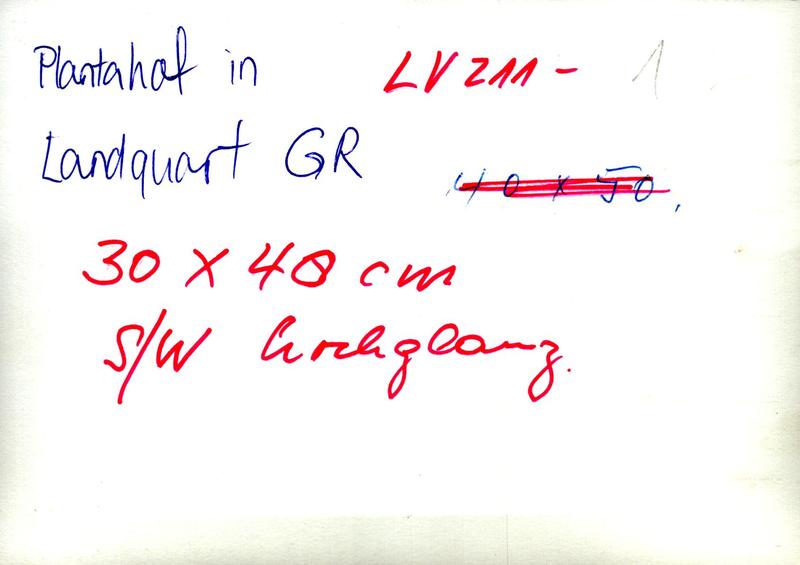 Plantahof in LV 211 - 1
Landquart GR
40 x 50.
30 X 40 cm
S/W hochglanz.